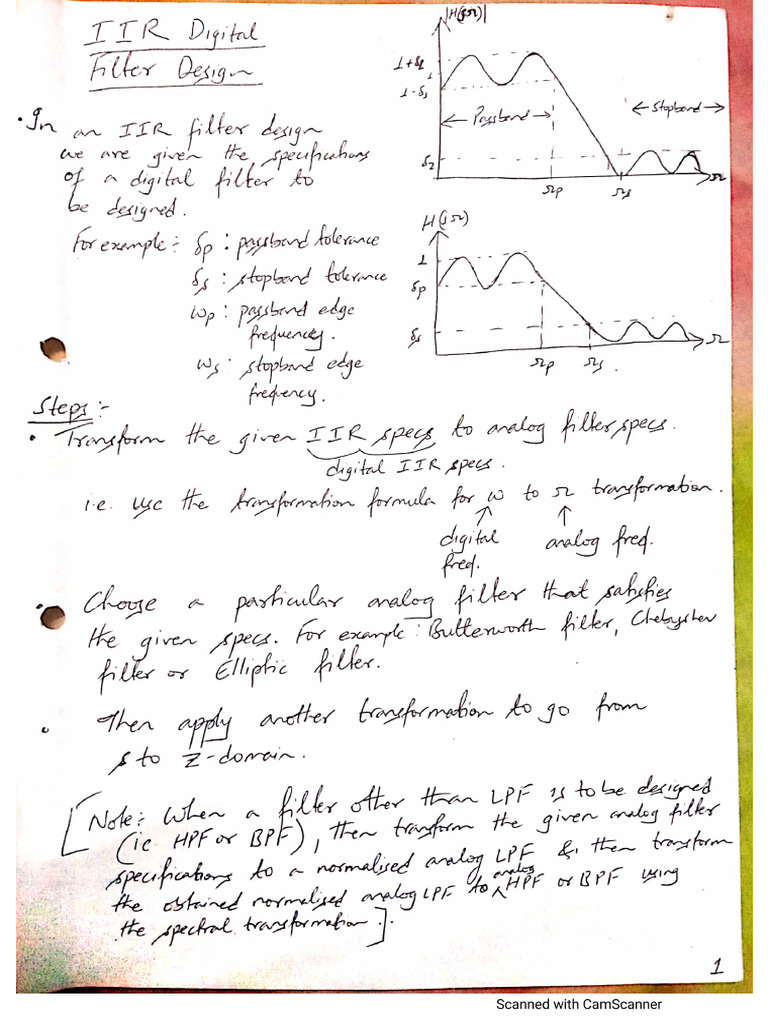 IIR Digital
Filter Design
• In an IIR filter design
we are given the specifications
of a digital filter to
be designed.
For example :- δp : passband tolerance
δs : stopband tolerance
ωp : passband edge
frequency.
ωs : stopband edge
frequency.
|H(jΩ)|
1+δ1
1
1-δ1
Passband
Stopband
δ2
Ωp
Ωs
Ω
H(jΩ)
1
δp
δs
Ωp
Ωs
Ω
Steps :-
• Transform the given IIR specs to analog filter specs.
digital IIR specs.
i.e. use the transformation formula for ω to Ω transformation.
digital analog freq.
freq.
• Choose a particular analog filter that satisfies
the given specs. For example : Butterworth filter, Chebyshev
filter or Elliptic filter.
• Then apply another transformation to go from
s to Z-domain.
[Note :- When a filter other than LPF is to be designed
(ie HPF or BPF), then transform the given analog filter
specifications to a normalised analog LPF & then transform
the obtained normalised analog LPF to analog HPF or BPF using
the spectral transformation.].
1
Scanned with CamScanner